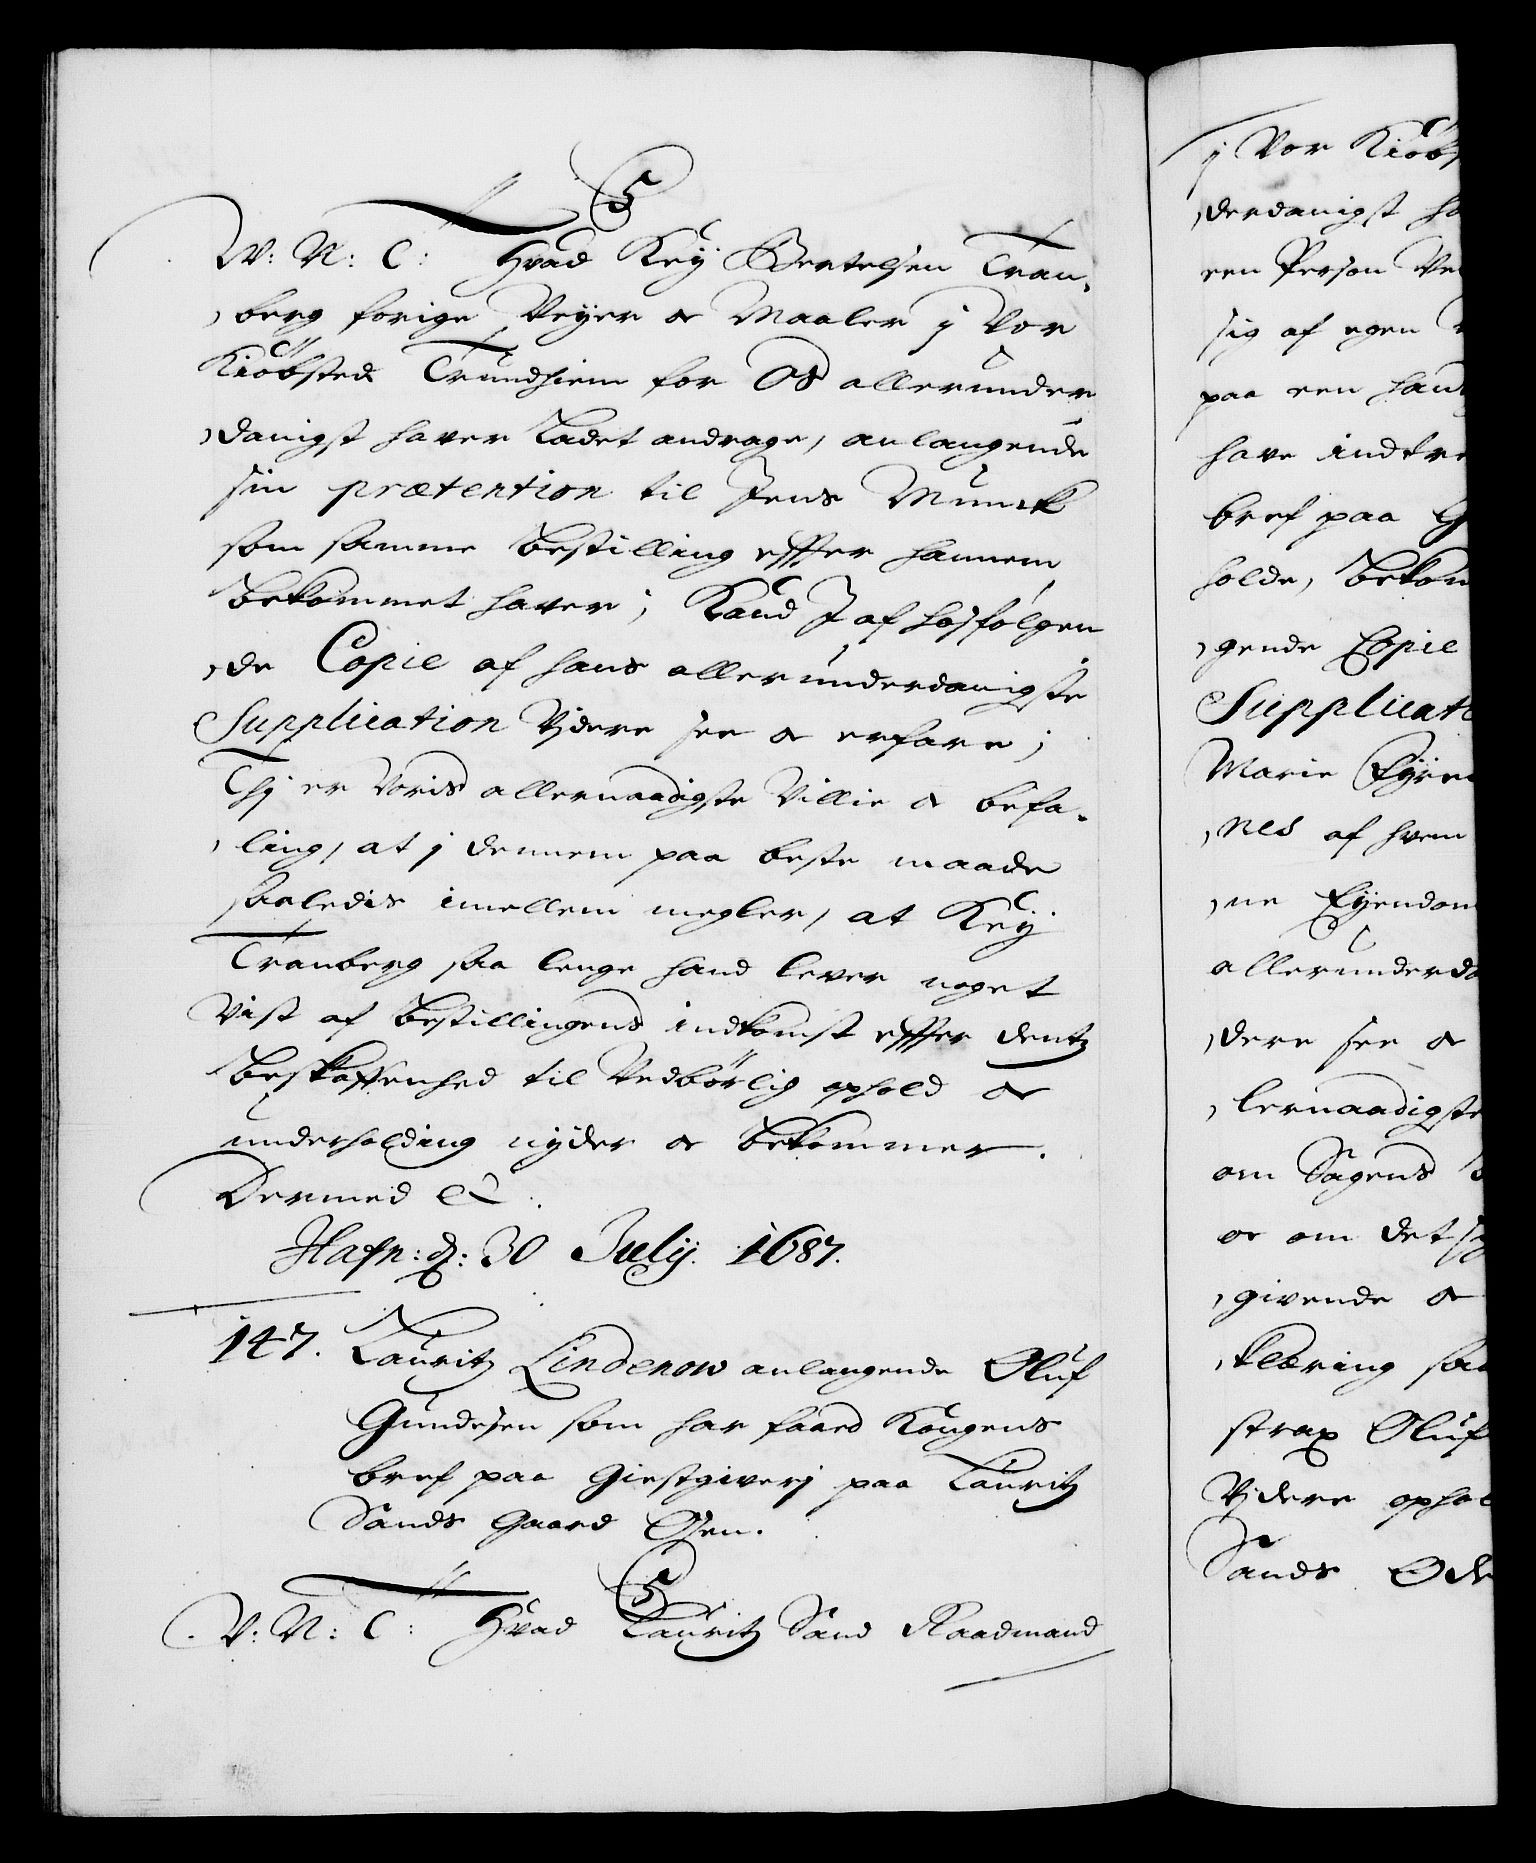 C5
W: N: C: Hvad Key Bertelsen Tran-
berg forige Veyer oc Maaler j Vor
Kiöbsted Trundhiem for Os allerunder
danigst haver ladet andrage, anlangende
sin prætention til Jens Munck
som samme bestilling effter hannem
bekommet haver; Kand J af hosfölgen
de Copie af hans allerunderdanigste
Supplication Vjdere see oc erfare;
Thj er Voris allernaadigste Villie oc befa-
ling, at j dennem paa beste maade
saaledis imellem megler, at Key
Tranberg saa lenge hand lever noget
Vist af bestillingens indkomst effter dentz
beskaffenhed til Vedbörlig ophold oc
underholding nyder oc bekommer.
Dermed &.
Hafn: d: 30 Julij. 1687.
147. Lauritz Lindenow anlangende Oluf
Gundesen som har faaed Kongens
bref paa Giestgiverj paa Lauritz
Sands Gaard Osen.
C5
V: N: C: Hvad Lauritz Sand Raadmand
j Vor Kiöbs
derdanigst ha
een Person Ve
sig af egen
paa een hand
have indtre
bref paa G
holde, bekom
gende Copie
Supplicati
Marie Eyen
nes af hvem
ne Eyendom
allerunderda
dere see oc
lernaadigste
om Sagens b
oc om det si
givende oc
klæring saa
strax Oluf
Vjdere ophol
Sands Ode